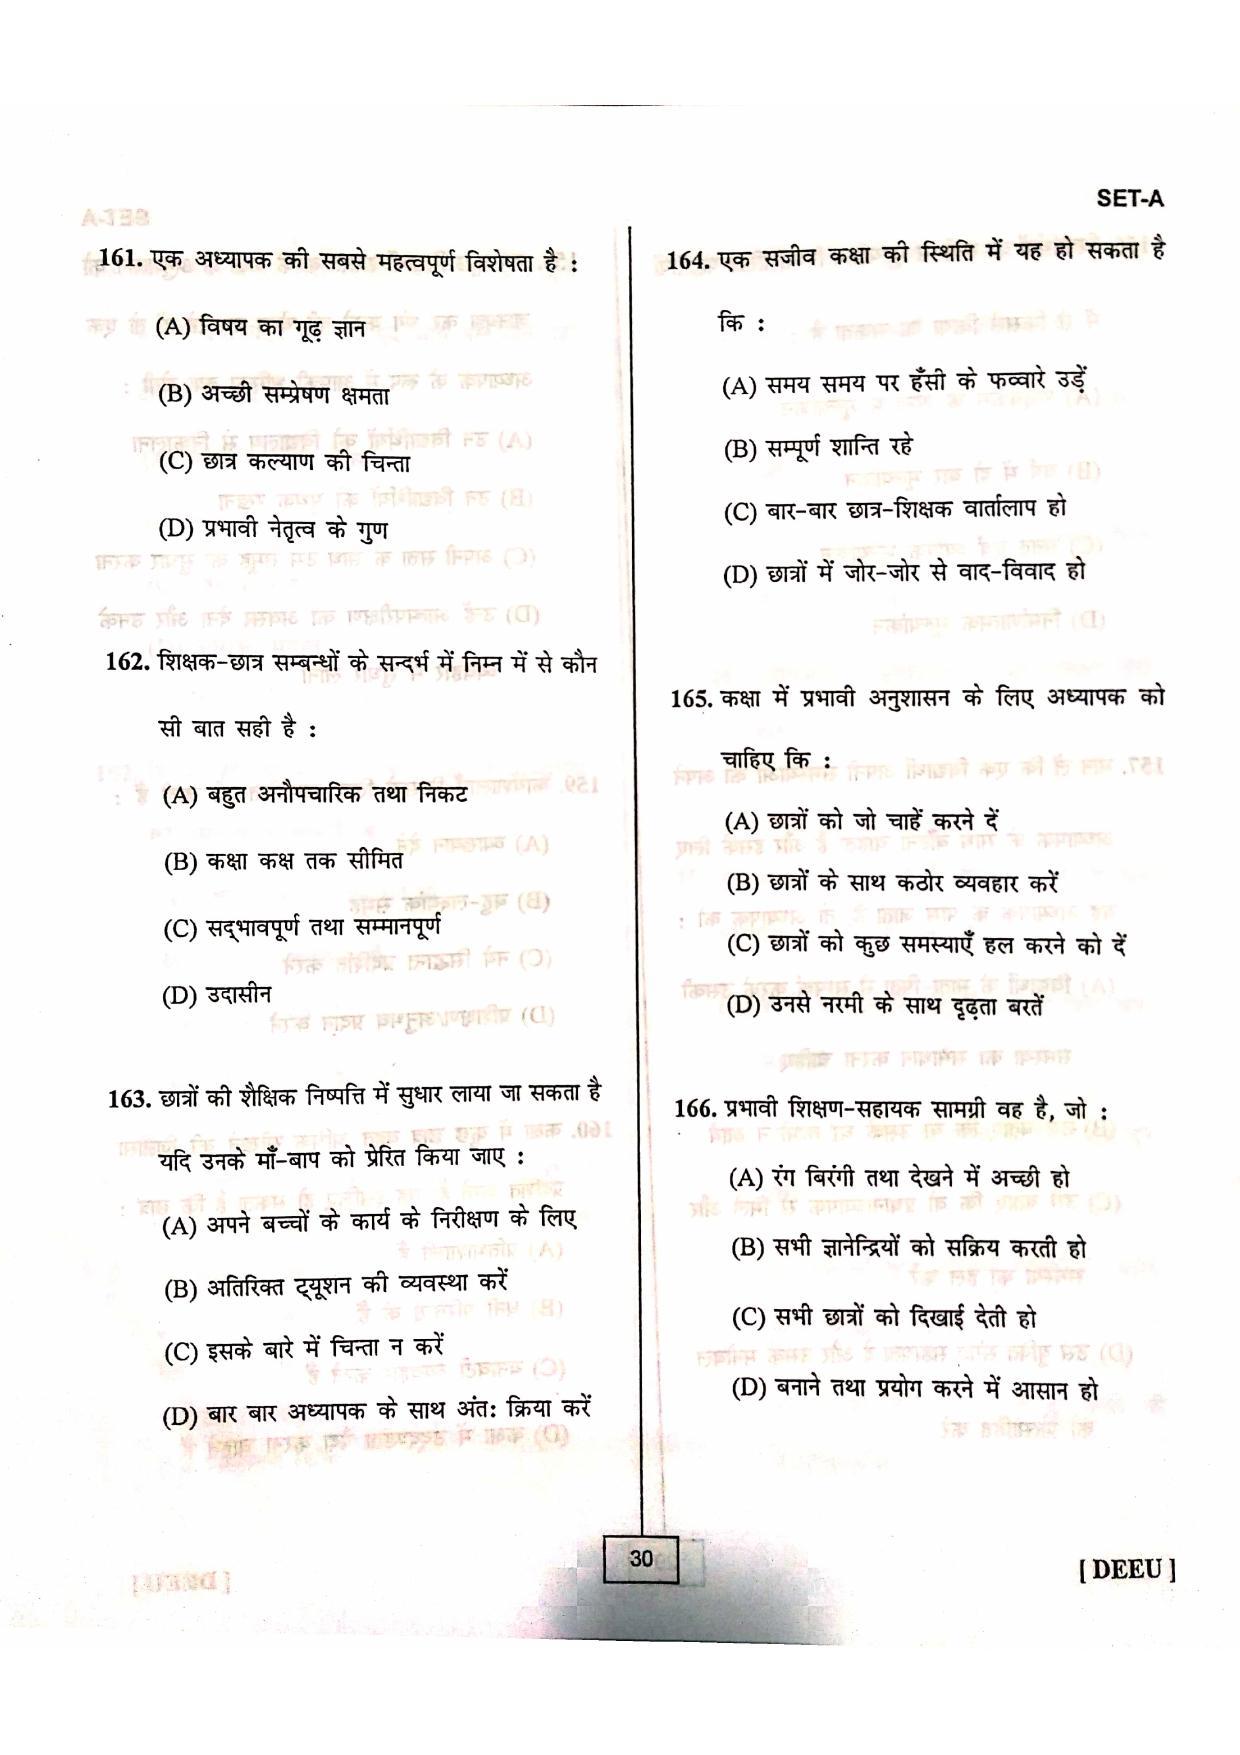 SET-A
161. एक अध्यापक की सबसे महत्वपूर्ण विशेषता है :
(A) विषय का गूढ़ ज्ञान
(B) अच्छी सम्प्रेषण क्षमता
(C) छात्र कल्याण की चिन्ता
(D) प्रभावी नेतृत्व के गुण
162. शिक्षक-छात्र सम्बन्धों के सन्दर्भ में निम्न में से कौन
सी बात सही है :
(A) बहुत अनौपचारिक तथा निकट
(B) कक्षा कक्ष तक सीमित
(C) सद्‌भावपूर्ण तथा सम्मानपूर्ण
(D) उदासीन
163. छात्रों की शैक्षिक निष्पत्ति में सुधार लाया जा सकता है
यदि उनके माँ-बाप को प्रेरित किया जाए :
(A) अपने बच्चों के कार्य के निरीक्षण के लिए
(B) अतिरिक्त ट्यूशन की व्यवस्था करें
(C) इसके बारे में चिन्ता न करें
(D) बार बार अध्यापक के साथ अंत: क्रिया करें
164. एक सजीव कक्षा की स्थिति में यह हो सकता है
कि :
(A) समय समय पर हँसी के फव्वारे उड़ें
(B) सम्पूर्ण शान्ति रहे
(C) बार-बार छात्र-शिक्षक वार्तालाप हो
(D) छात्रों में जोर-जोर से वाद-विवाद हो
165. कक्षा में प्रभावी अनुशासन के लिए अध्यापक को
चाहिए कि :
(A) छात्रों को जो चाहें करने दें
(B) छात्रों के साथ कठोर व्यवहार करें
(C) छात्रों को कुछ समस्याएँ हल करने को दें
(D) उनसे नरमी के साथ दृढ़ता बरतें
166. प्रभावी शिक्षण-सहायक सामग्री वह है, जो :
(A) रंग बिरंगी तथा देखने में अच्छी हो
(B) सभी ज्ञानेन्द्रियों को सक्रिय करती हो
(C) सभी छात्रों को दिखाई देती हो
(D) बनाने तथा प्रयोग करने में आसान हो
30
[ DEEU ]